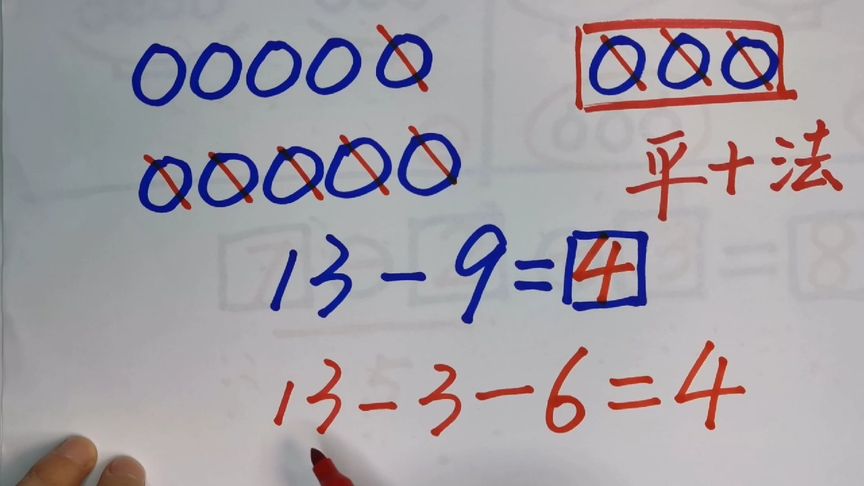 平十法
13-9=4
13-3-6=4